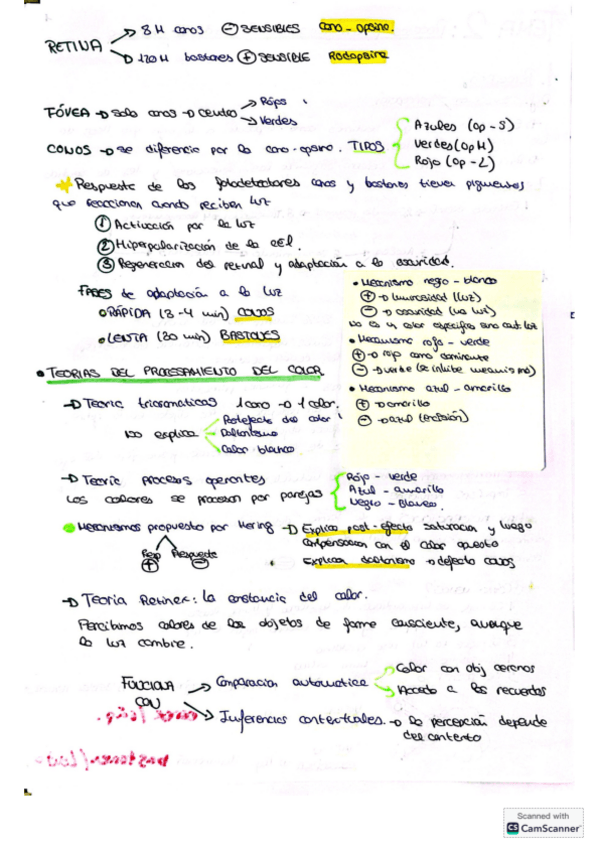 RETINA
→ 8 M conos ⊖ SENSIBLES cono-opsina.
→ 120 M bastones ⊕ SENSIBLE Rodopsina
FÓVEA → Solo conos → centro → Rojos
→ Verdes
CONOS → se diferencia por la cono-opsina. TIPOS
Azules (op-S)
Verdes (op M)
Rojo (op-L)
* Respuesta de los fotodetectores conos y bastones tienen pigmentos
que reaccionan cuando reciben luz
① Activación por la luz
② Hiperpolarización de la cél.
③ Regeneración del retinal y adaptación a la oscuridad.
FASES de adaptación a la luz
• RÁPIDA (3-4 min) CONOS
• LENTA (30 min) BASTONES
• Mecanismo negro-blanco
⊕ → luminosidad (luz)
⊖ → oscuridad (no luz)
No es un color específico sino cant. luz
• Mecanismo rojo-verde
⊕ → rojo como dominante
⊖ → verde (se inhibe mecanismo)
• Mecanismo azul-amarillo
⊕ → amarillo
⊖ → azul
• TEORIAS DEL PROCESAMIENTO DEL COLOR
→ Teoria tricromaticas 1 cono → 1 color.
No explica
Postefecto del color
Daltonismo
Color blanco
→ Teoria procesos oponentes
Los colores se procesan por parejas
Rojo - verde
Azul - amarillo
Negro - Blanco
• Mecanismos propuesto por Hering → Explica post-efecto saturacion y luego
compensacion con el color opuesto
Resp ⊕
Respuesta ⊖
Explican daltonismo → defecto conos
→ Teoria Retinex: la constancia del color.
Percibimos colores de los objetos de forma consciente, aunque
la luz cambie.
FUNCIONA
CON
→ Comparacion automatica
→ Color con obj cercanos
→ Acceso a los recuerdos
→ Inferencias contextuales. → la percepción depende
del contexto
Scanned with
CS CamScanner